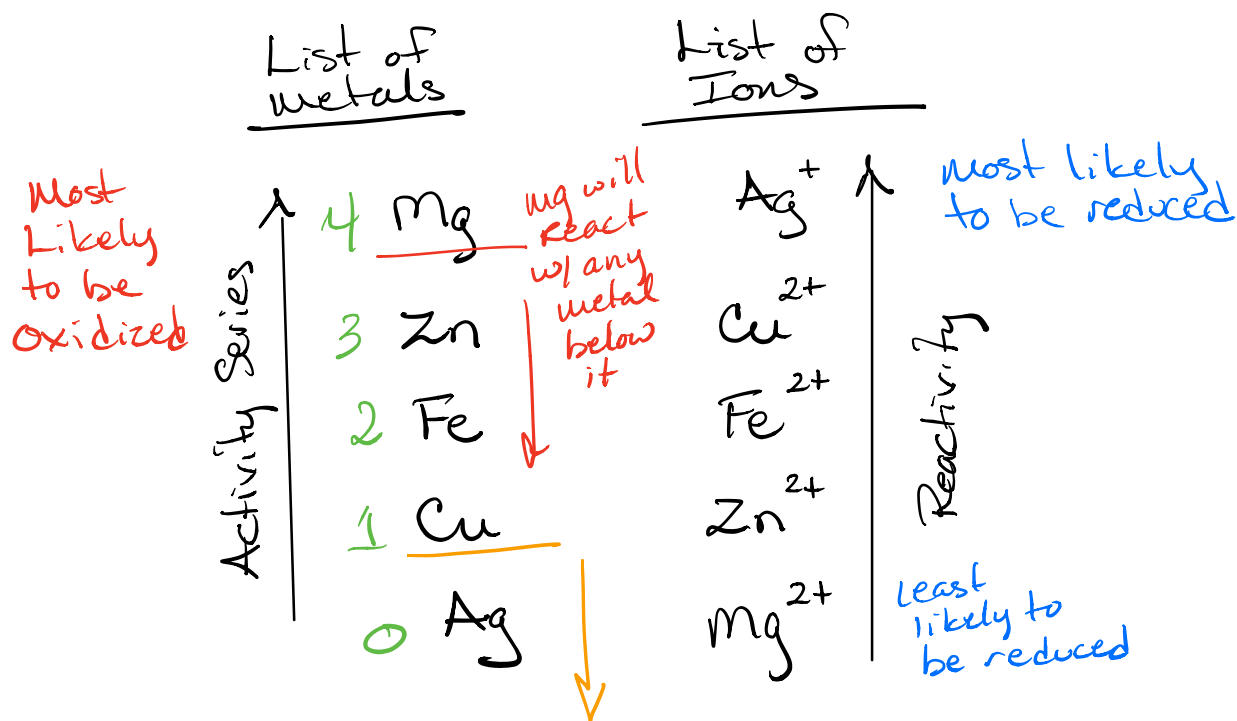 List of
metals
List of
Ions
Most
Likely
to be
oxidized
Activity Series
4 Mg
3 Zn
2 Fe
1 Cu
0 Ag
mg will
React
w/ any
metal
below
it
Ag+
Cu2+
Fe2+
Zn2+
Mg2+
Reactivity
most likely
to be reduced
Least
likely to
be reduced